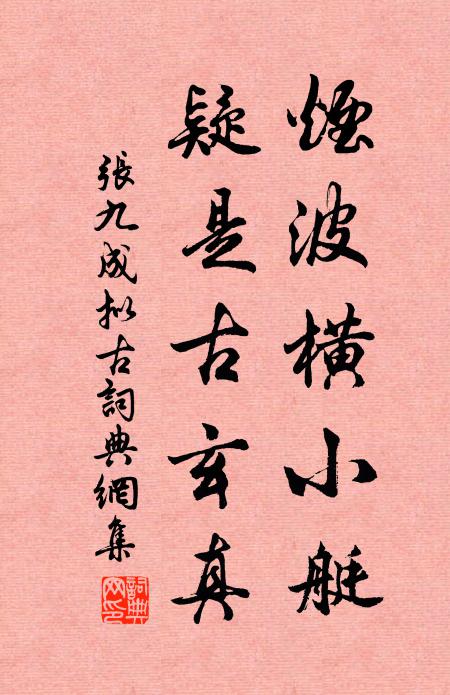 煙波橫小艇
疑是古玄真
張九成擬古詞典網集
詞典網印